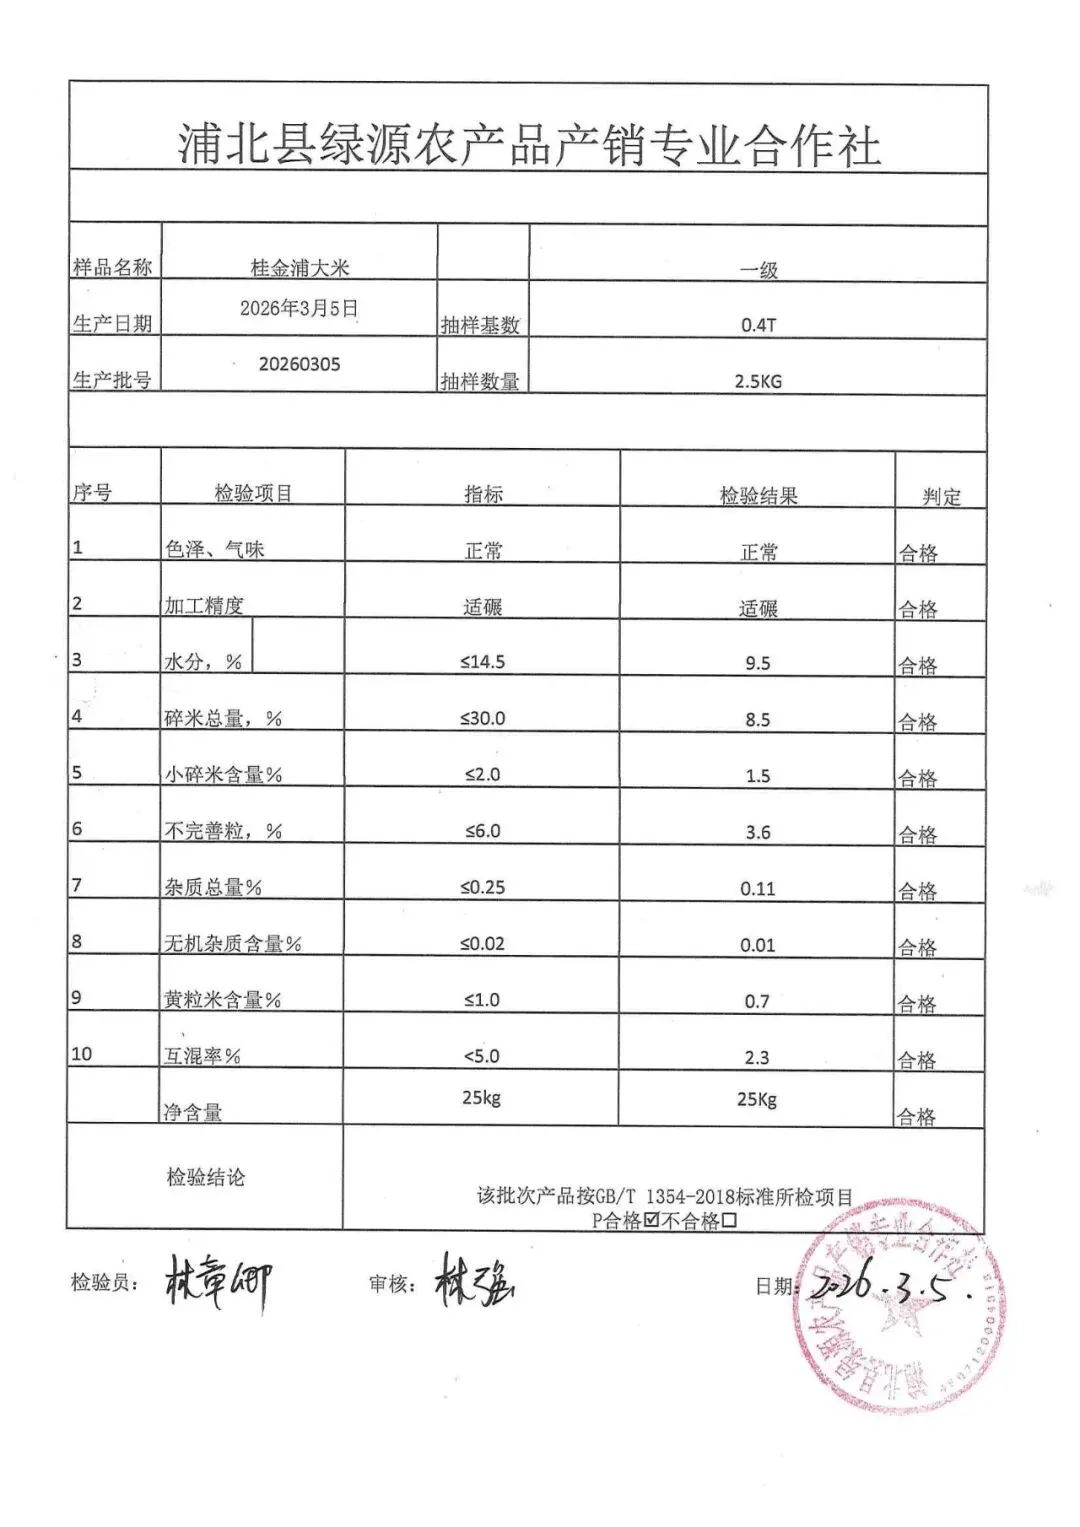 浦北县绿源农产品产销专业合作社
样品名称 桂金浦大米 一级
生产日期 2026年3月5日 抽样基数 0.4T
生产批号 20260305 抽样数量 2.5KG
序号 检验项目 指标 检验结果 判定
1 色泽、气味 正常 正常 合格
2 加工精度 适碾 适碾 合格
3 水分，% ≤14.5 9.5 合格
4 碎米总量，% ≤30.0 8.5 合格
5 小碎米含量% ≤2.0 1.5 合格
6 不完善粒，% ≤6.0 3.6 合格
7 杂质总量% ≤0.25 0.11 合格
8 无机杂质含量% ≤0.02 0.01 合格
9 黄粒米含量% ≤1.0 0.7 合格
10 互混率% <5.0 2.3 合格
净含量 25kg 25Kg 合格
检验结论 该批次产品按GB/T 1354-2018标准所检项目
P合格☑不合格☐
检验员： 林章 审核：林强 日期：2026.3.5.
浦北县绿源农产品产销专业合作社